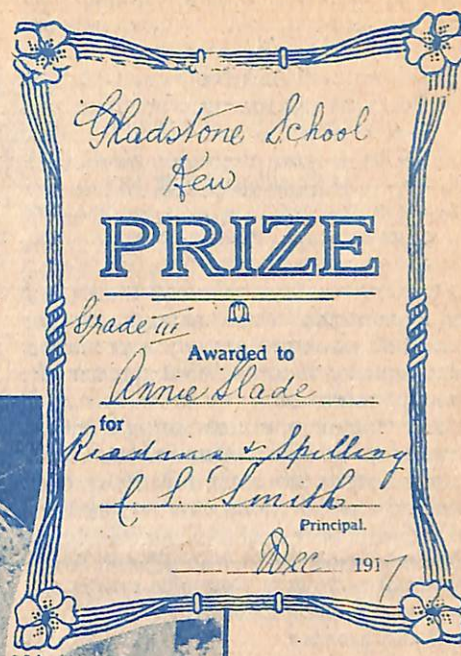 Gladstone School
Kew
PRIZE
Grade III
Awarded to
Annie Slade
for
Reading & Spelling
C S Smith
Principal.
Dec 1917